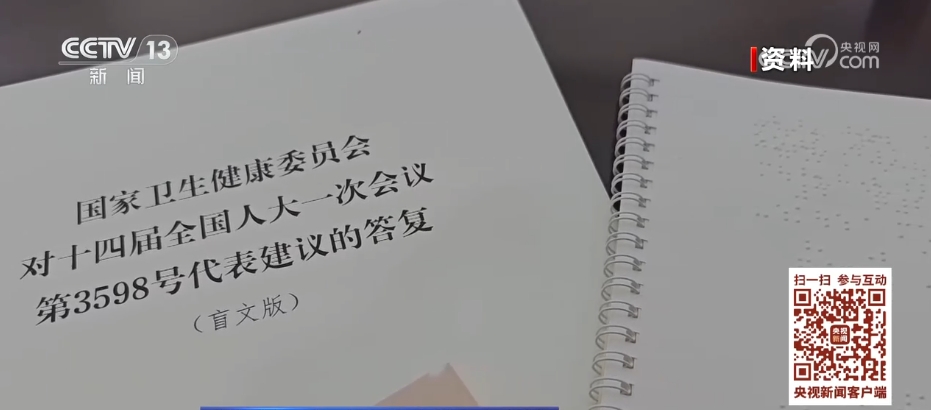 CCTV 13
新闻
资料
央视网
com
国家卫生健康委员会
对十四届全国人大一次会议
第3598号代表建议的答复
（盲文版）
扫一扫 参与互动
央视
新闻
央视新闻客户端